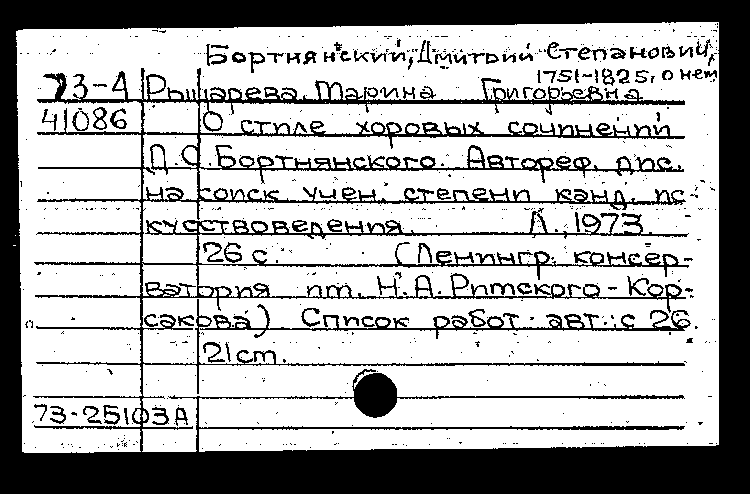 Бортнянский, Дмитрий Степанович,
1751-1825, о нем
73-4 Рыцарева, Марина Григорьевна
41086 О стиле хоровых сочинений
Д.С. Бортнянского. Автореф. дис.
на соиск. учен. степени канд. ис-
кусствоведения. Л., 1973.
26 с. (Ленингр. консер-
ватория им. Н.А. Римского-Кор-
сакова) Список работ авт.: с 26.
21 см.
73-25103А